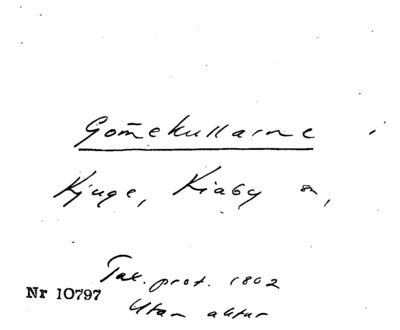 Gōmekullarne i
Kjuge, Kiaby sn,
Tax. prot. 1802
Nr 10797
Utan aktur